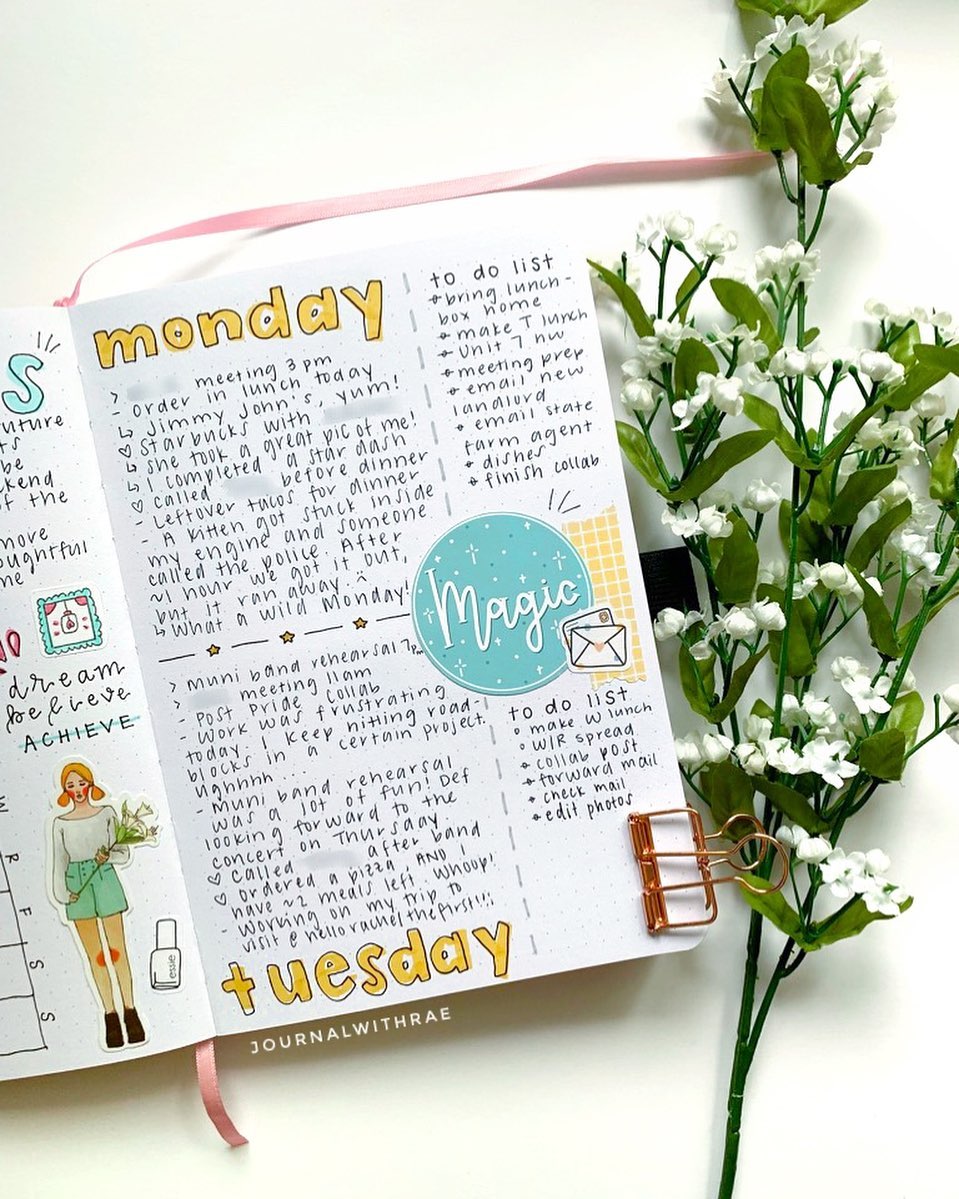 S
future
ts
be
ekend
of the
more
oughtful
me
dream
believe
ACHIEVE
W
R
F
S
S
essie
monday
> meeting 3pm
- order in lunch today
↳ Jimmy John's, yum!
♡ Starbucks with
↳ she took a great pic of me!
↳ I completed a star dash
♡ called before dinner
- Leftover tacos for dinner
- A kitten got stuck inside
my engine and someone
called the police. After
~1 hour we got it out,
but it ran away :(
↳ What a wild Monday!
to do list
bring lunch-
box home
make T lunch
Unit 7 hw
meeting prep
email new
landlord
email state
farm agent
dishes
finish collab
Magic
> Muni band rehearsal 7pm
> meeting 11am
- Post Pride collab
- Work was frustrating
today. I keep hitting road-
blocks in a certain project.
Ughhhh....
- Muni band rehearsal
was a lot of fun! Def
looking forward to the
concert on Thursday
♡ Called after band
♡ Ordered a pizza AND I
have ~2 meals left. Whoop!
- Working on my trip to
visit @hellorachelthefirst!!!
to do list
make W lunch
W/R spread
collab post
forward mail
check mail
edit photos
tuesday
JOURNALWITHRAE